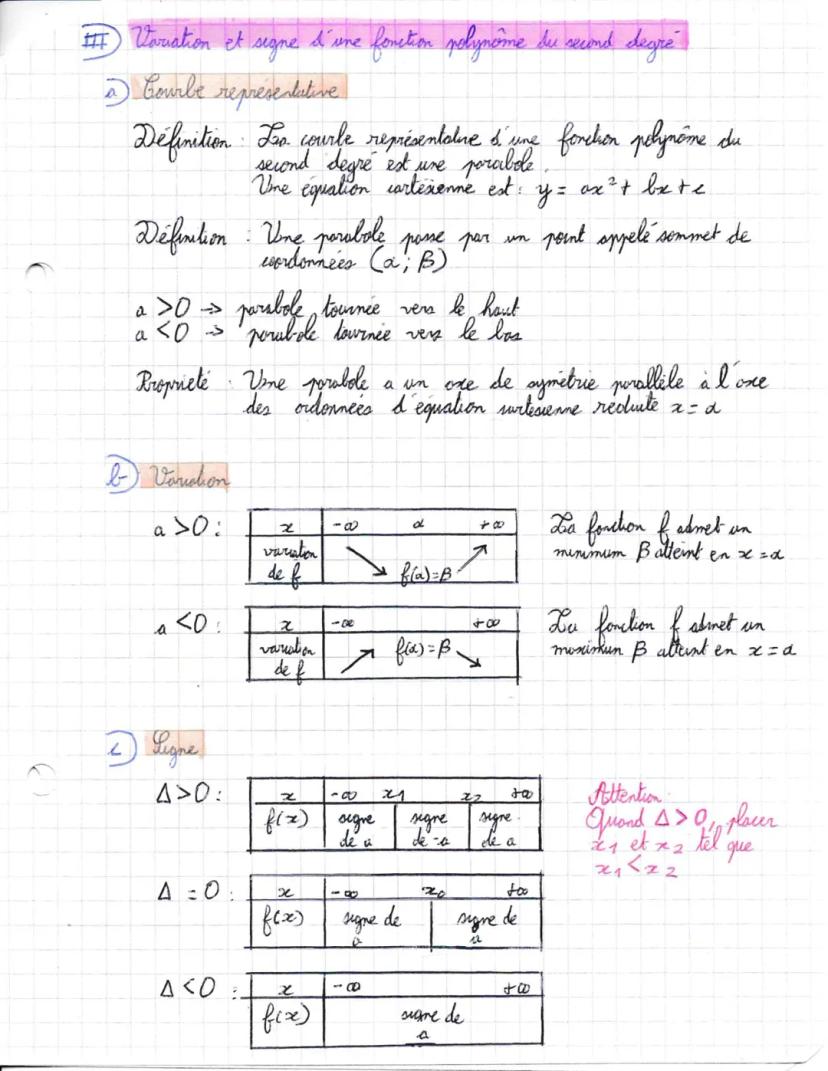 III) Variation et signe d'une fonction polynôme du second degré
a) Courbe représentative
Définition : La courbe représentative d'une fonction polynôme du
second degré est une parabole.
Une équation cartésienne est : y = ax² + bx + c
Définition : Une parabole passe par un point appelé sommet de
coordonnées (α ; β)
a > 0 => parabole tournée vers le haut
a < 0 => parabole tournée vers le bas
Propriété : Une parabole a un axe de symétrie parallèle à l'axe
des ordonnées d'équation cartésienne réduite x = α
b) Variation
a > 0 : x -∞ α +∞ La fonction f admet un
variation minimum β atteint en x = α
de f ↘ f(α) = β ↗
a < 0 : x -∞ +∞ La fonction f admet un
variation ↗ f(α) = β ↘ maximum β atteint en x = α
de f
c) Signe
Δ > 0 : x -∞ x₁ x₂ +∞
f(x) signe signe signe
de a de -a de a
Attention
Quand Δ > 0, placer
x₁ et x₂ tel que
x₁ < x₂
Δ = 0 : x -∞ x₀ +∞
f(x) signe de signe de
a a
Δ < 0 : x -∞ +∞
f(x) signe de
a